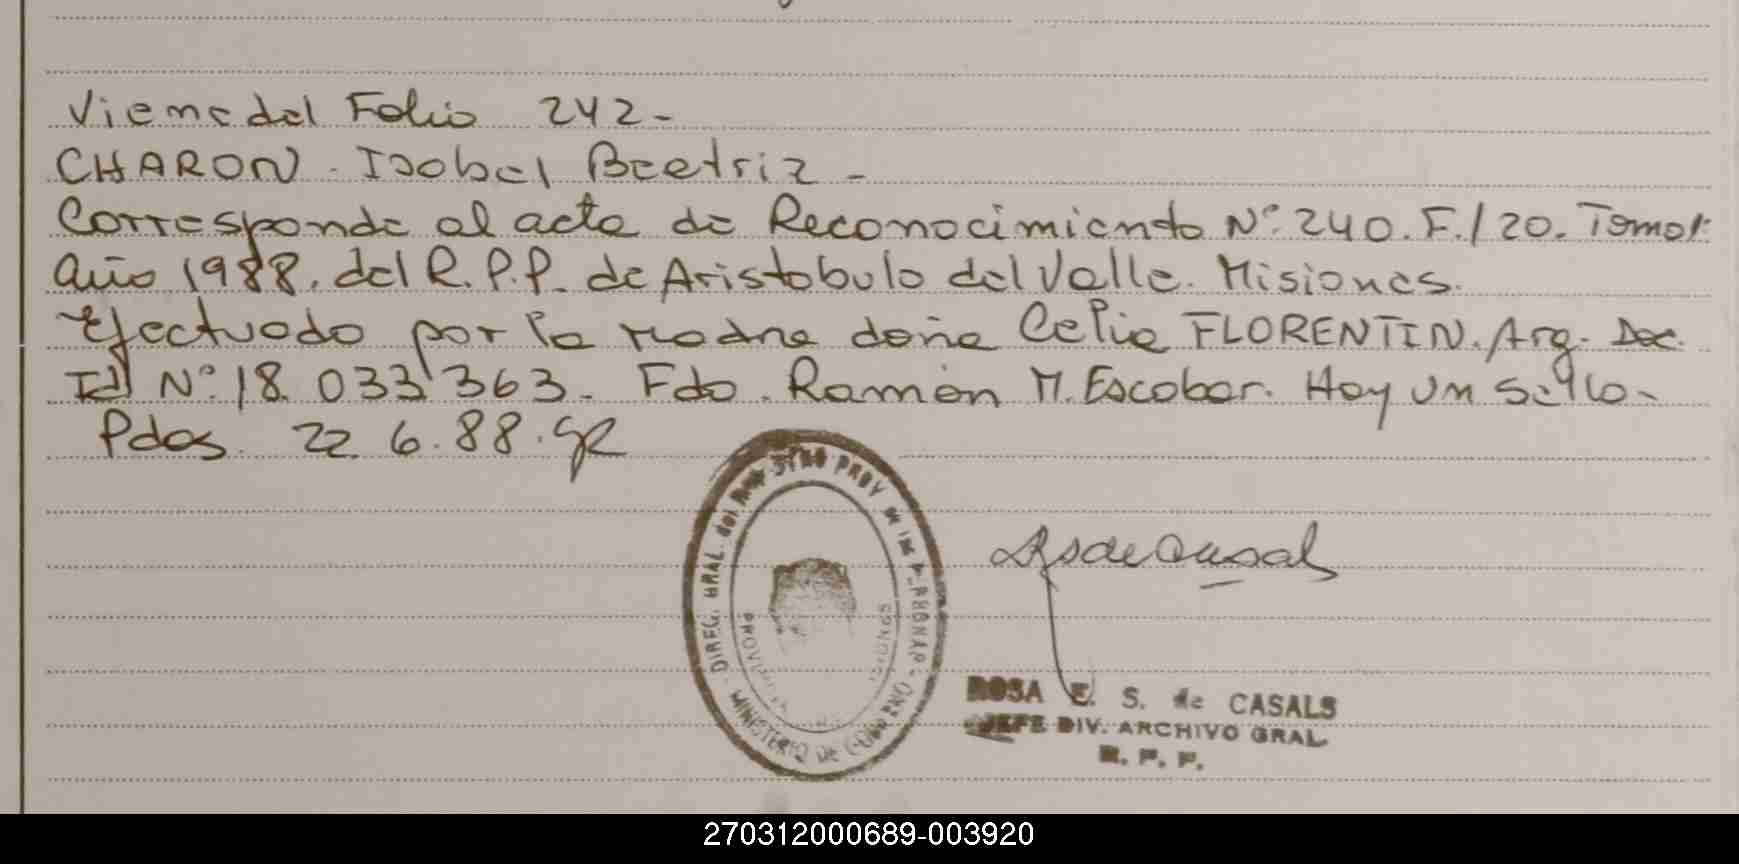 Viene del Folio 242-
CHARON - Isabel Beatriz -
Corresponde al acta de Reconocimiento Nº. 240. F./20. Tomo 1º
año 1988. del R.P.P. de Aristobulo del Valle. Misiones.
Efectuado por la madre doña Celia FLORENTIN. Arg. Doc.
Id Nº. 18.033.363- Fdo. Ramón M. Escobar. Hay un sello-
Pdas. 22 6.88.
DIREC. GRAL. del REGISTRO PROV de las P
PROVINCIA MISIONES
MINISTERIO DE GOBIERNO
ROSA E. S. de CASALS
JEFE DIV. ARCHIVO GRAL.
R. P. P.
270312000689-003920